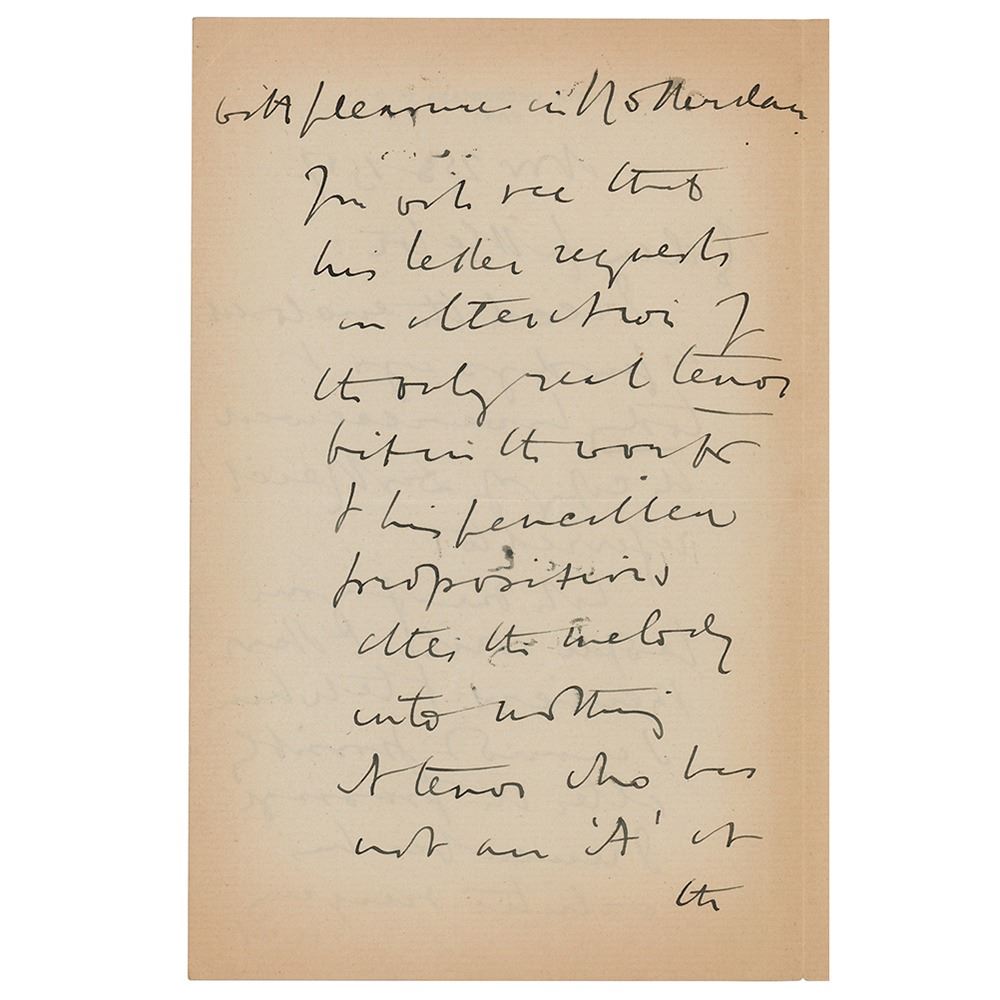 with pleasure in Rotterdam.
You will see that
his letter requests
an alteration of
the only real tenor
bit in the work
& his pencilled
propositions
alter the melody
into nothing
A tenor who has
not an 'A' at
the